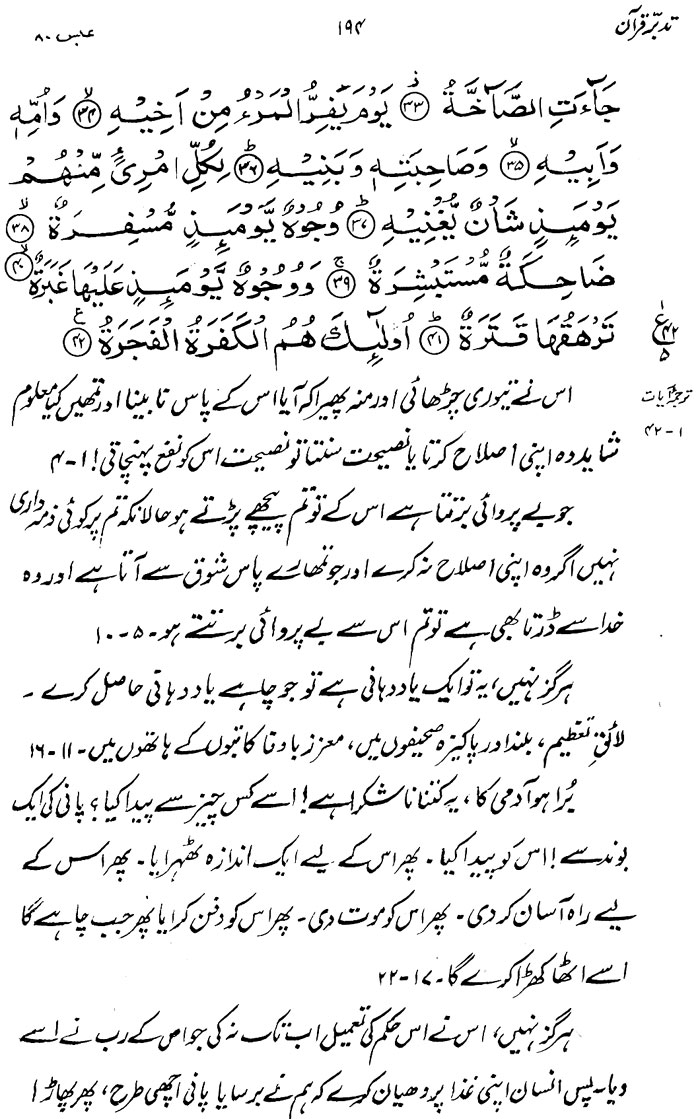 تدبّرِ قرآن ۱۹۴ عبس ۸۰
جَآءَتِ الصَّآخَّةُ ﴿۳۳﴾ يَوْمَ يَفِرُّ الْمَرْءُ مِنْ اَخِيْهِ ﴿۳۴﴾ وَاُمِّهٖ
وَاَبِيْهِ ﴿۳۵﴾ وَصَاحِبَتِهٖ وَبَنِيْهِ ﴿۳۶﴾ لِكُلِّ امْرِئٍ مِّنْهُمْ
يَوْمَئِذٍ شَاْنٌ يُّغْنِيْهِ ﴿۳۷﴾ وُجُوْهٌ يَّوْمَئِذٍ مُّسْفِرَةٌ ﴿۳۸﴾
ضَاحِكَةٌ مُّسْتَبْشِرَةٌ ﴿۳۹﴾ وَوُجُوْهٌ يَّوْمَئِذٍ عَلَيْهَا غَبَرَةٌ ﴿۴۰﴾
تَرْهَقُهَا قَتَرَةٌ ﴿۴۱﴾ اُولٰٓئِكَ هُمُ الْكَفَرَةُ الْفَجَرَةُ ﴿۴۲﴾
۱
ع ۴۲
۵
ترجمۂ آیات
۱-۴۲
اس نے تیوری چڑھائی اور منہ پھیرا کہ آیا اس کے پاس نابینا اور تمھیں کیا معلوم
شاید وہ اپنی اصلاح کرتا یا نصیحت سنتا تو نصیحت اس کو نفع پہنچاتی! ۱-۴
جو بے پروائی برتتا ہے اس کے تو تم پیچھے پڑتے ہو حالانکہ تم پر کوئی ذمہ داری
نہیں اگر وہ اپنی اصلاح نہ کرے اور جو تمھارے پاس شوق سے آتا ہے اور وہ
خدا سے ڈرتا بھی ہے تو تم اس سے بے پروائی برتتے ہو۔ ۵-۱۰
ہرگز نہیں، یہ تو ایک یاددہانی ہے تو جو چاہے یاددہانی حاصل کرے۔
لائقِ تعظیم، بلند اور پاکیزہ صحیفوں میں، معزز باوفا کاتبوں کے ہاتھوں میں۔ ۱۱-۱۶
بُرا ہو آدمی کا، یہ کتنا ناشکرا ہے! اسے کس چیز سے پیدا کیا؟ پانی کی ایک
بوند سے! اس کو پیدا کیا۔ پھر اس کے لیے ایک اندازہ ٹھہرایا۔ پھر اس کے
لیے راہ آسان کر دی۔ پھر اس کو موت دی۔ پھر اس کو دفن کرایا پھر جب چاہے گا
اسے اٹھا کھڑا کرے گا۔ ۱۷-۲۲
ہرگز نہیں، اس نے اس حکم کی تعمیل اب تک نہ کی جو اس کے رب نے اسے
دیا۔ پس انسان اپنی غذا پر دھیان کرے کہ ہم نے برسایا پانی اچھی طرح، پھر پھاڑا!